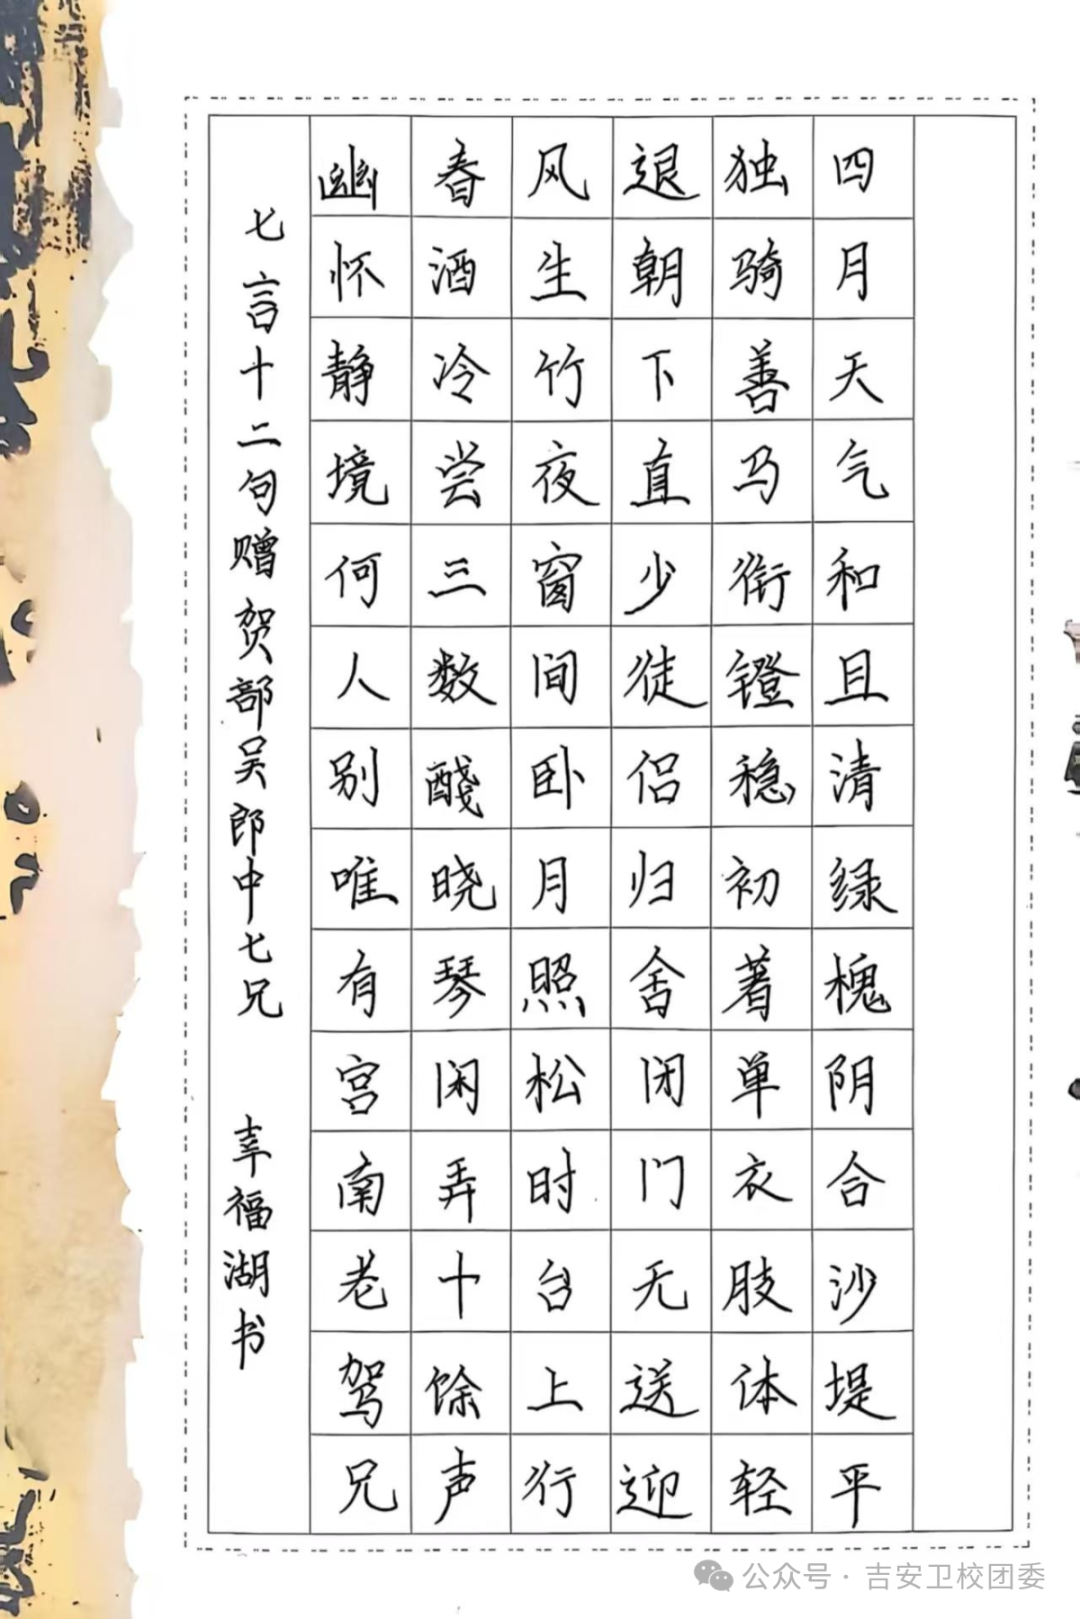 四月天气和且清绿槐阴合沙堤平
独骑善马衔镫稳初著单衣肢体轻
退朝下直少徒侣归舍闭门无送迎
风生竹夜窗间卧月照松时台上行
春酒冷尝三数醆晓琴闲弄十馀声
幽怀静境何人别唯有宫南老驾兄
七言十二句赠贺部吴郎中七兄 幸福湖书
公众号·吉安卫校团委